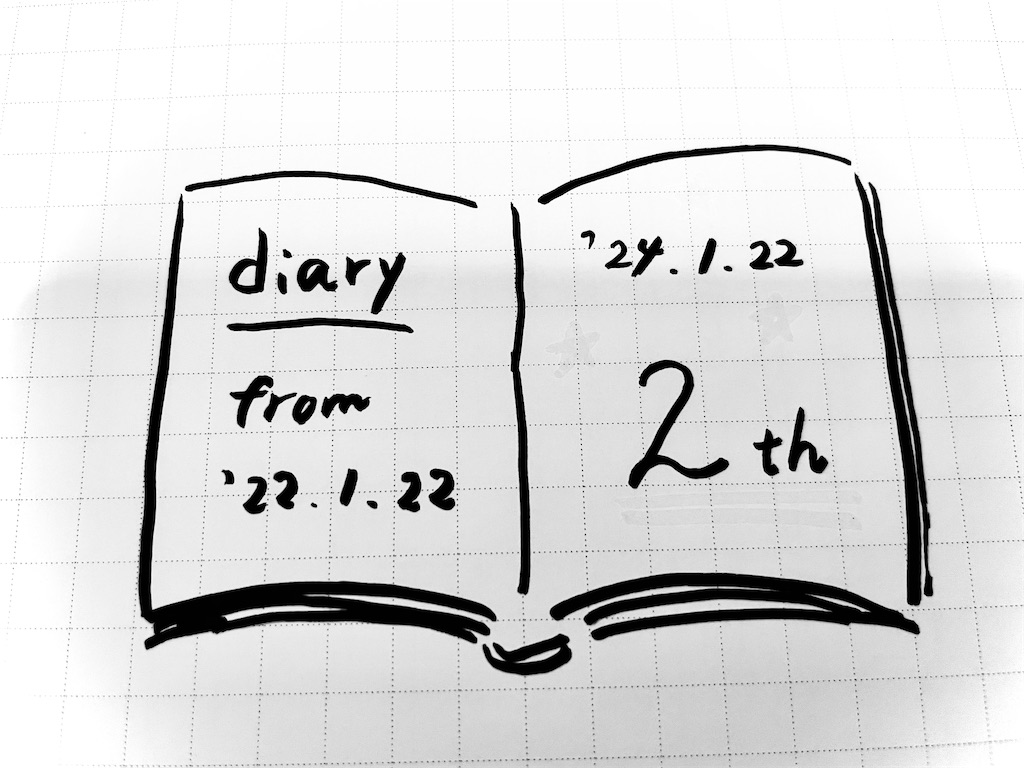 diary
from
'22.1.22
'24.1.22
2th